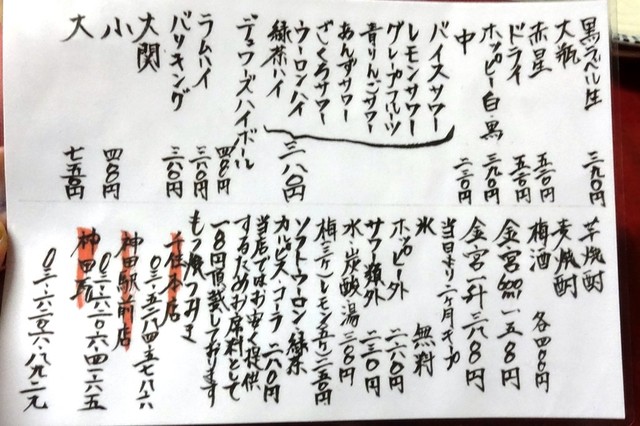 黒ラベル生 三九〇円
大瓶
赤星 五五〇円
ドライ 五五〇円
ホッピー白・黒 三九〇円
中 二三〇円
バイスサワー
レモンサワー
グレープフルーツ
青りんごサワー
あんずサワー
ざくろサワー
ウーロンハイ
緑茶ハイ
三八〇円
デュワーズハイボール 四八〇円
ラムハイ 三八〇円
バリキング 三八〇円
大関
小 四〇円
大 七五〇円
芋焼酎
麦焼酎
梅酒 各四〇〇円
金宮600ml 一五八〇円
金宮一升
当日より二ヶ月キープ
氷 無料
ホッピー外 二六〇円
サワー類外 二三〇円
水・炭酸・湯
梅(三ヶ)レモン 二五〇円
ソフトウーロン・緑茶
カルピス・コーラ 二八〇円
当店ではお安く提供
するためお席料として
一八〇円頂戴しております
もつ焼つみき
千住本店
〇三・五二八四・五七八六
神田駅前店
〇三・六二〇六・四一六五
〇三・六二〇六・八九二九